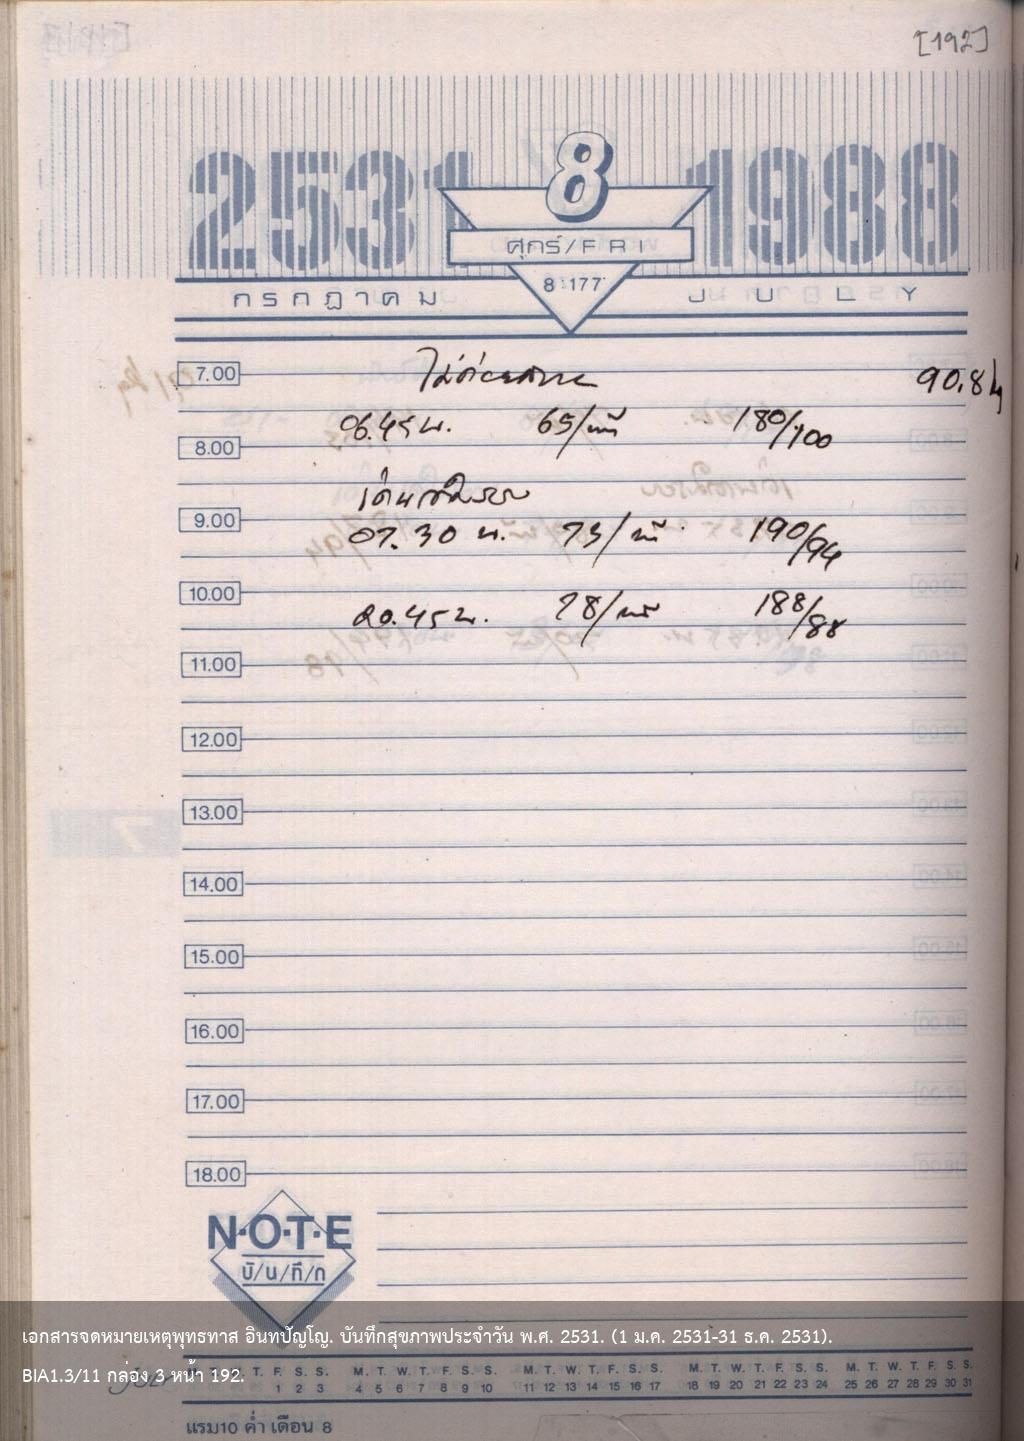 [192]
2531 8 1988
ศุกร์/FRI
8:177
กรกฎาคม JULY
7.00 90.8 kg
06.45 น. 65/นาที 180/100
8.00
9.00
07.30 น. 73/นาที 190/94
10.00
20.45 น. 78/นาที 188/88
11.00
12.00
13.00
14.00
15.00
16.00
17.00
18.00
N·O·T·E
บั/น/ทึ/ก
เอกสารจดหมายเหตุพุทธทาส อินทปัญโญ. บันทึกสุขภาพประจำวัน พ.ศ. 2531. (1 ม.ค. 2531-31 ธ.ค. 2531).
M. T. W. T. F. S. S. M. T. W. T. F. S. S. M. T. W. T. F. S. S. M. T. W. T. F. S. S.
BIA1.3/11 กล่อง 3 หน้า 192.
1 2 3 4 5 6 7 8 9 10 11 12 13 14 15 16 17 18 19 20 21 22 23 24 25 26 27 28 29 30 31
แรม10 ค่ำ เดือน 8